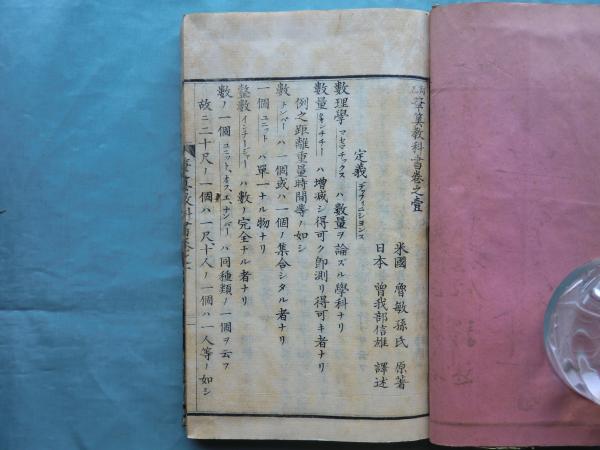 筆算教科書巻之壹
米國 魯敏孫氏 原著
日本 曾我部信雄 譯述
定義 デッフィニシヨンス
數理學 マセマチックス ハ數量ヲ論ズル學科ナリ
數量 クオンチチー ハ増减シ得可ク即測リ得可キ者ナリ
例之距離重量時間等ノ如シ
數 ナンバー ハ一個或ハ一個ノ集合シタル者ナリ
一個 ユニット ハ單一ナル物ナリ
整數 インテージヤー ハ數ノ完全ナル者ナリ
數ノ一個 ユニット、オフ、エ、ナンバー ハ同種類ノ一個ヲ云フ
故ニ二十尺ノ一個ハ一尺十人ノ一個ハ一人等ノ如シ
筆算教科書巻之一